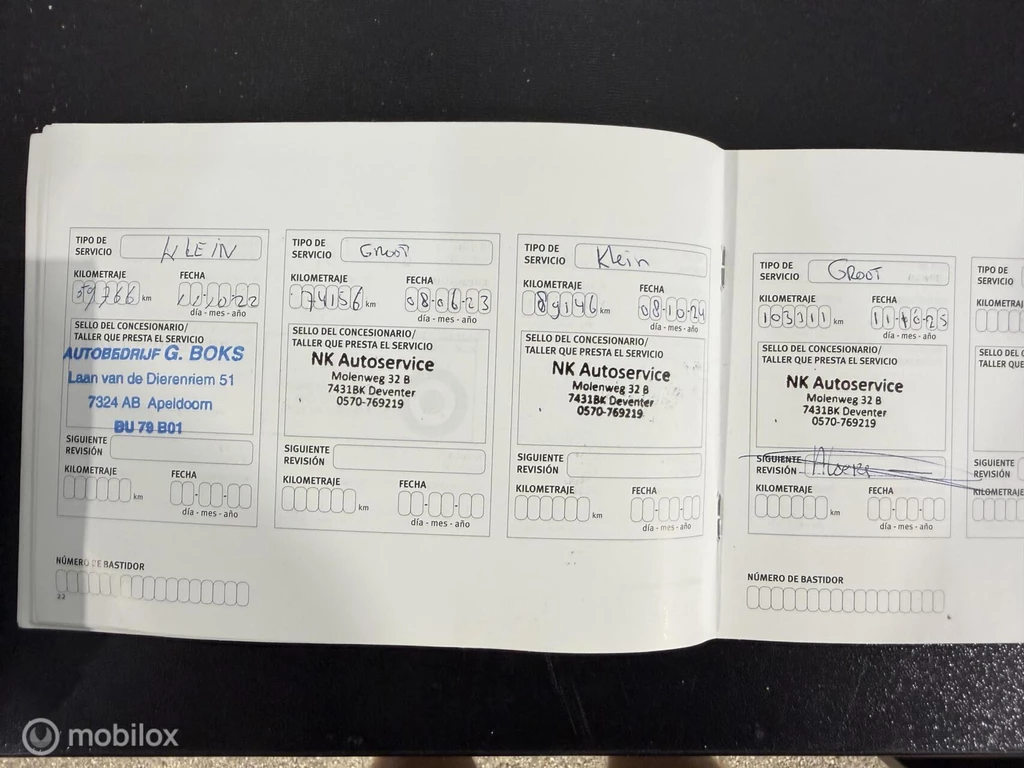 TIPO DE
SERVICIO
KLEIN
KILOMETRAJE
FECHA
59766 km
11-10-22
día - mes - año
SELLO DEL CONCESIONARIO/
TALLER QUE PRESTA EL SERVICIO
AUTOBEDRIJF G. BOKS
Laan van de Dierenriem 51
7324 AB Apeldoorn
BU 79 B01
SIGUIENTE
REVISIÓN
KILOMETRAJE
FECHA
km
día - mes - año
NÚMERO DE BASTIDOR
22
TIPO DE
SERVICIO
GROOT
KILOMETRAJE
FECHA
74156 km
08-06-23
día - mes - año
SELLO DEL CONCESIONARIO/
TALLER QUE PRESTA EL SERVICIO
NK Autoservice
Molenweg 32 B
7431BK Deventer
0570-769219
SIGUIENTE
REVISIÓN
KILOMETRAJE
FECHA
km
día - mes - año
TIPO DE
SERVICIO
Klein
KILOMETRAJE
FECHA
89146 km
08-10-24
día - mes - año
SELLO DEL CONCESIONARIO/
TALLER QUE PRESTA EL SERVICIO
NK Autoservice
Molenweg 32 B
7431BK Deventer
0570-769219
SIGUIENTE
REVISIÓN
KILOMETRAJE
FECHA
km
día - mes - año
TIPO DE
SERVICIO
GROOT
KILOMETRAJE
FECHA
103311 km
día - mes - año
SELLO DEL CONCESIONARIO/
TALLER QUE PRESTA EL SERVICIO
NK Autoservice
Molenweg 32 B
7431BK Deventer
0570-769219
SIGUIENTE
REVISIÓN
KILOMETRAJE
FECHA
km
día - mes - año
NÚMERO DE BASTIDOR
TIPO DE
SERVICIO
KILOMETRAJ
SELLO DEL C
TALLER QUE
SIGUIENTE
REVISIÓN
KILOMETRAJE
mobilox